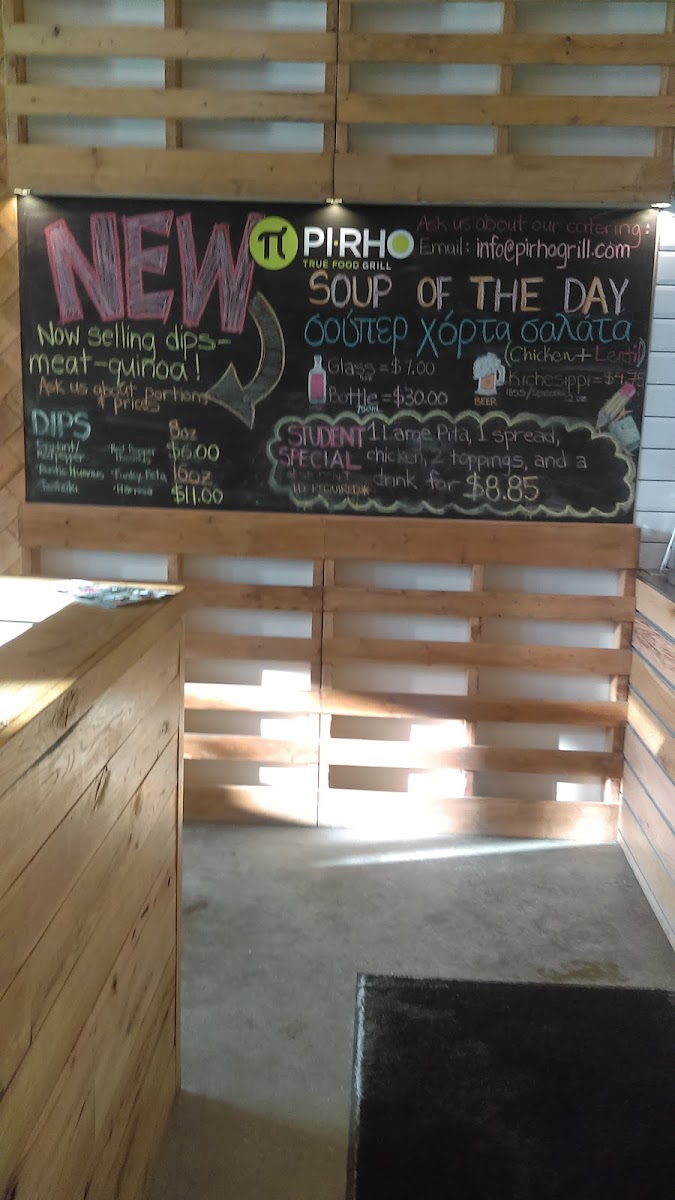 NEW
Now selling dips-
meat-quinoa!
Ask us about portions
& prices
DIPS
8oz
$6.00
16oz
$11.00
• Rustic Hummus
• Funky Feta
• Tzatziki
• Harissa
π PI·RHO
TRUE FOOD GRILL
Ask us about our catering:
Email: info@pirhogrill.com
SOUP OF THE DAY
σούπερ χόρτα σαλάτα
(Chicken + Lentil)
Glass = $7.00
Bottle = $30.00
750ml
BEER
Kichesippi = $4.75
STUDENT SPECIAL
ID REQUIRED*
1 Large Pita, 1 spread,
chicken, 2 toppings, and a
drink for $8.85